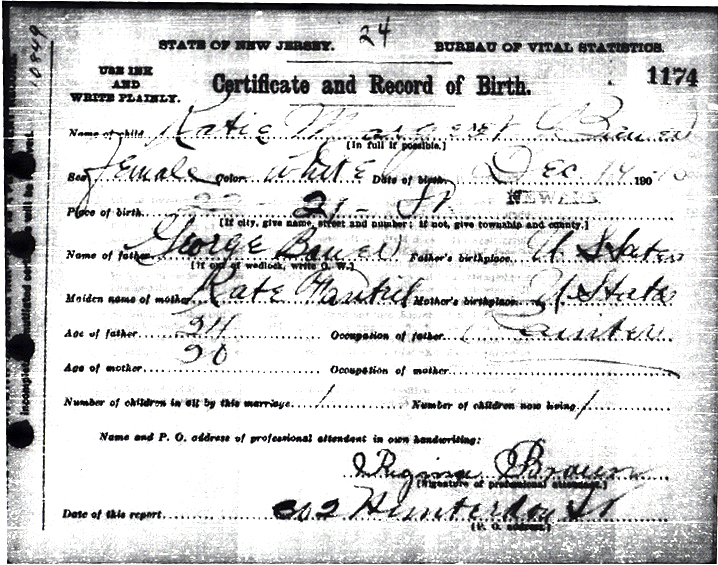 10849
STATE OF NEW JERSEY. 24 BUREAU OF VITAL STATISTICS.
USE INK
AND
WRITE PLAINLY.
Certificate and Record of Birth.
1174
Name of child Katie Margeret Bauer
[In full if possible.]
Sex female Color White Date of birth Dec 14 190
Place of birth 22 - 21 - St NEWARK
[If city, give name, street and number; if not, give township and county.]
Name of father George Bauer Father's birthplace U States
[If out of wedlock, write O. W.]
Maiden name of mother Kate Mother's birthplace U States
Age of father 24 Occupation of father Painter
Age of mother 20 Occupation of mother
Number of children in all by this marriage 1 Number of children now living 1
Name and P. O. address of professional attendant in own handwriting:
Regina Braun
[Signature of professional attendant.]
Date of this report 302 Hunterdon St
[P. O. address.]